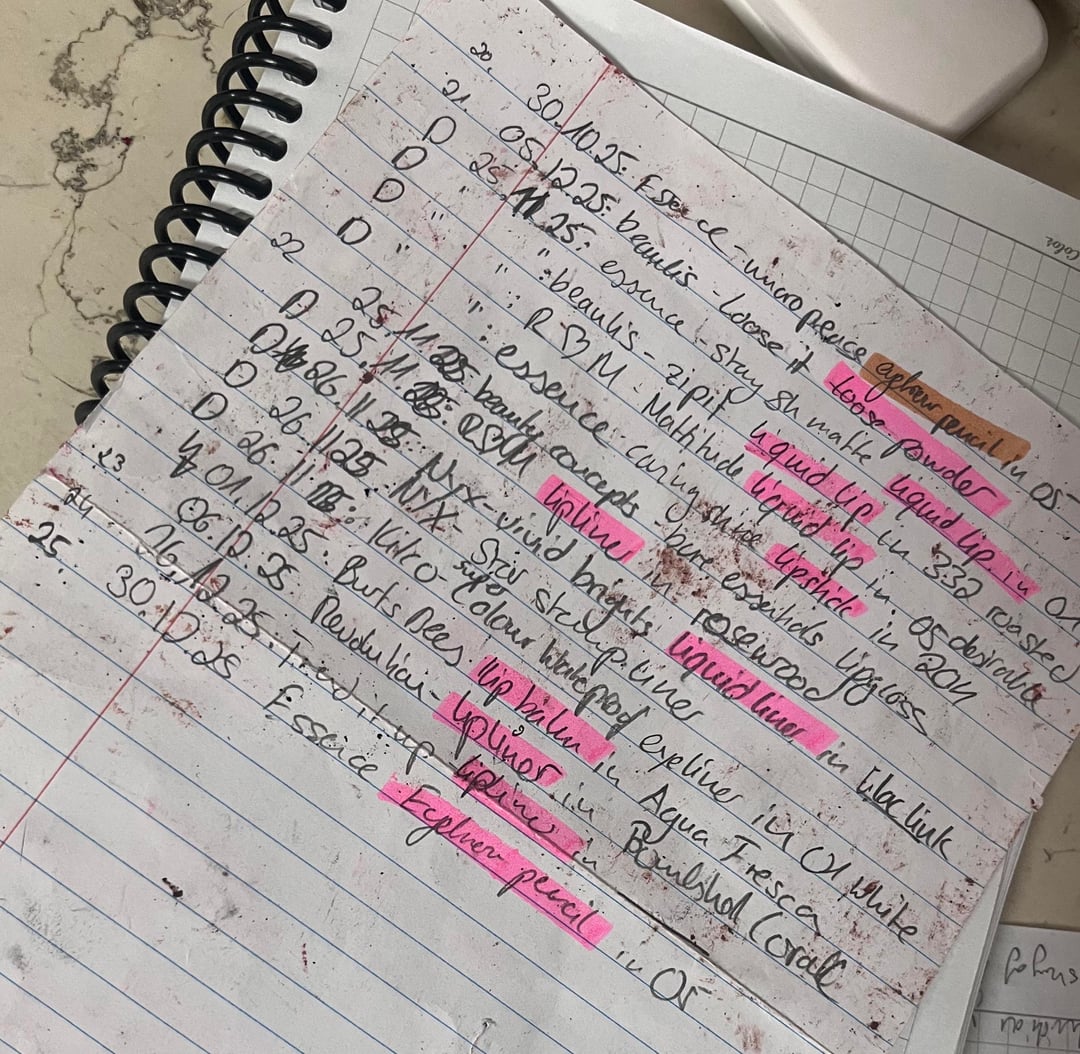 20. 30.10.25: Essence - micro precise eyebrow pencil in 05
21 05.12.25: beautis - Loose it loose powder
D 25.11.25: essence - stay 8h matte liquid lip in 01
D " ": beautis - zip it liquid lip in 332 roasted
D " ": R♡M - Matttitude liquid lip in 05 desirable
D " ": essence caring shine lipstick in 204
22 25.11.25 beauty concepts - bare essentials lipgloss
D 25.11.25: R♡M lipliner in rosewood
D 26.11.25: Nyx - vivid brights liquid liner in lilac link
D 26.11.25 NYX - Star sticker liner
D 26.11.25: Kiko - super colour waterproof eyeliner in 01 white
01.12.25: Burts Bees lip balm in Aqua Fresca
23 06.12.25 Revolution - lipliner in Bombshell Coral
24. 26.12.25. Trend it up lipliner in
25. 30.12.25 Essence Eyebrow pencil in 05
Color